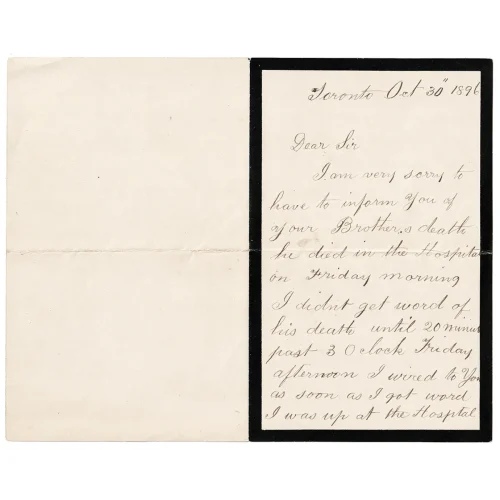 Toronto Oct 30" 1896
Dear Sir
I am very sorry to
have to inform You of
Your Brother,s death
he died in the Hospital
on Friday morning
I didnt get word of
his death until 20 minut
past 3 O clock Friday
afternoon I wired to You
as soon as I got word
I was up at the Hospital